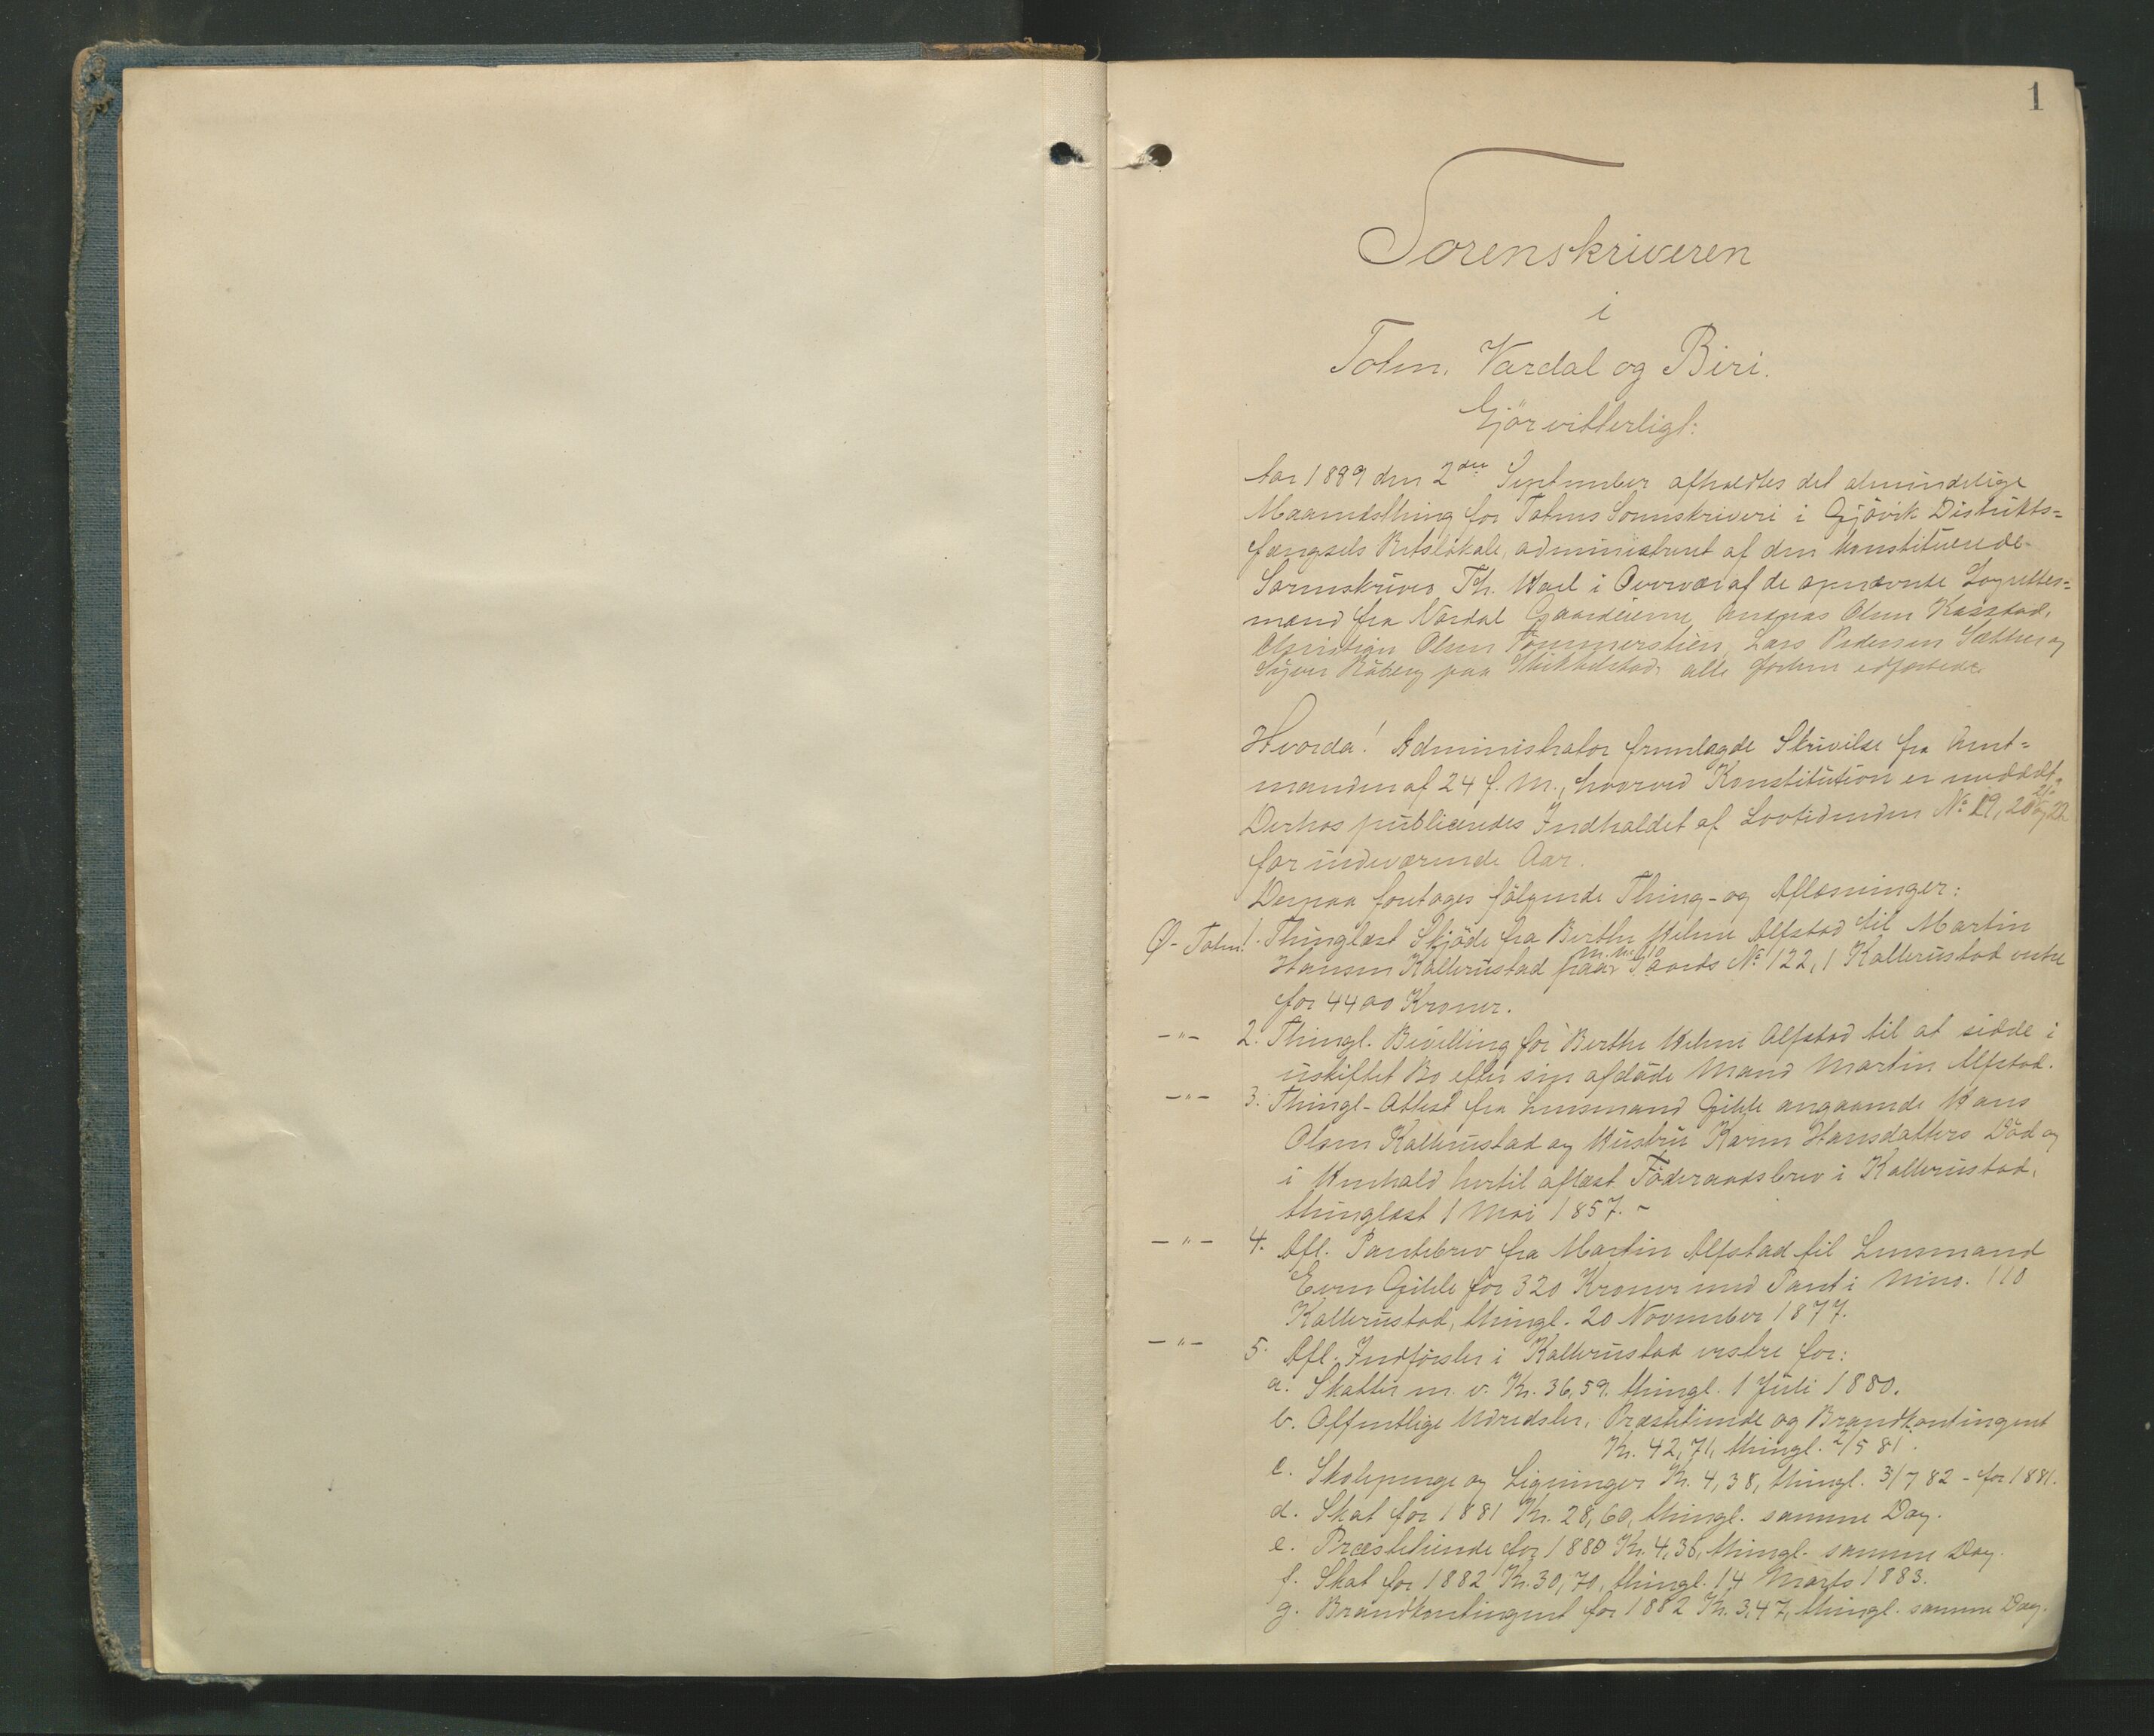 1
Sorenskriveren
i
Toten, Vardal og Biri.
Gjör vitterligt:
Aar 1889 den 2den September afholdtes det almindelige
Maanedsthing for Totens Sorenskriveri i Gjövik Distrikts=
fængsels Retslokale, administreret af den konstituerede
Sorenskriver Th. i Overvær af de opnævnte Lagrettes=
mænd fra Vardal Gaardeierne Andreas Olsen Kasstad,
Christian Olsen Tömmerstien, Lars Pedersen Sætther og
Syver Raaberg paa alle forhen edfæstede.
Hvorda! Administrator fremlagde Skrivelse fra Amt=
manden af 24 f. M., hvorved Konstitution er meddelt.
Derhos publiceredes Indholdet af Lovtidenden No 19, 20, 21 og 22
for indeværende Aar.
Derpaa foretages fölgende Thing- og Aflæsninger:
Ö- Toten. 1. Thinglæst Skjöde fra Berthe Helene Alfstad til Martin
Hansen Kallerustad paa M. No. 110 Gaards No 122,1 Kallerustad vestre
for 4400 Kroner.
-"- 2. Thingl. Bevilling for Berthe Helene Alfstad til at sidde i
uskiftet Bo efter sin afdöde Mand Martin Alfstad.
-"- 3. Thingl- Attest fra Lensmand Gihle angaaende Hans
Olsen Kallerustad og Hustru Karen Hansdatters Död og
i Henhold hertil aflæst Föderaadsbrev i Kallerustad,
thinglæst 1 Mai 1857. -
-"- 4. Afl. Pantebrev fra Martin Alfstad til Lensmand
Even Gihle for 320 Kroner med Pant i M.no. 110
Kallerustad, thingl. 20 November 1877.
-"- 5. Afl. Indförsler i Kallerustad vestre for:
a. Skatter m. v. Kr. 36,59. thingl. 1 Juli 1880.
b. Offentlige Udredsler, Præstetiende og Brandkontingent
Kr. 42,71, thingl. 2/5 81.
c. Skolepenge og Ligninger Kr. 4,38, thingl. 3/7 82 - for 1881.
d. Skat for 1881 Kr. 28,60, thingl. samme Dag.
e. Præstetiende for 1880 Kr. 4,36, thingl. samme Dag.
f. Skat for 1882 Kr. 30,70, thingl. 14 Marts 1883.
g. Brandkontingent for 1882 Kr. 3,47, thingl. samme Dag.